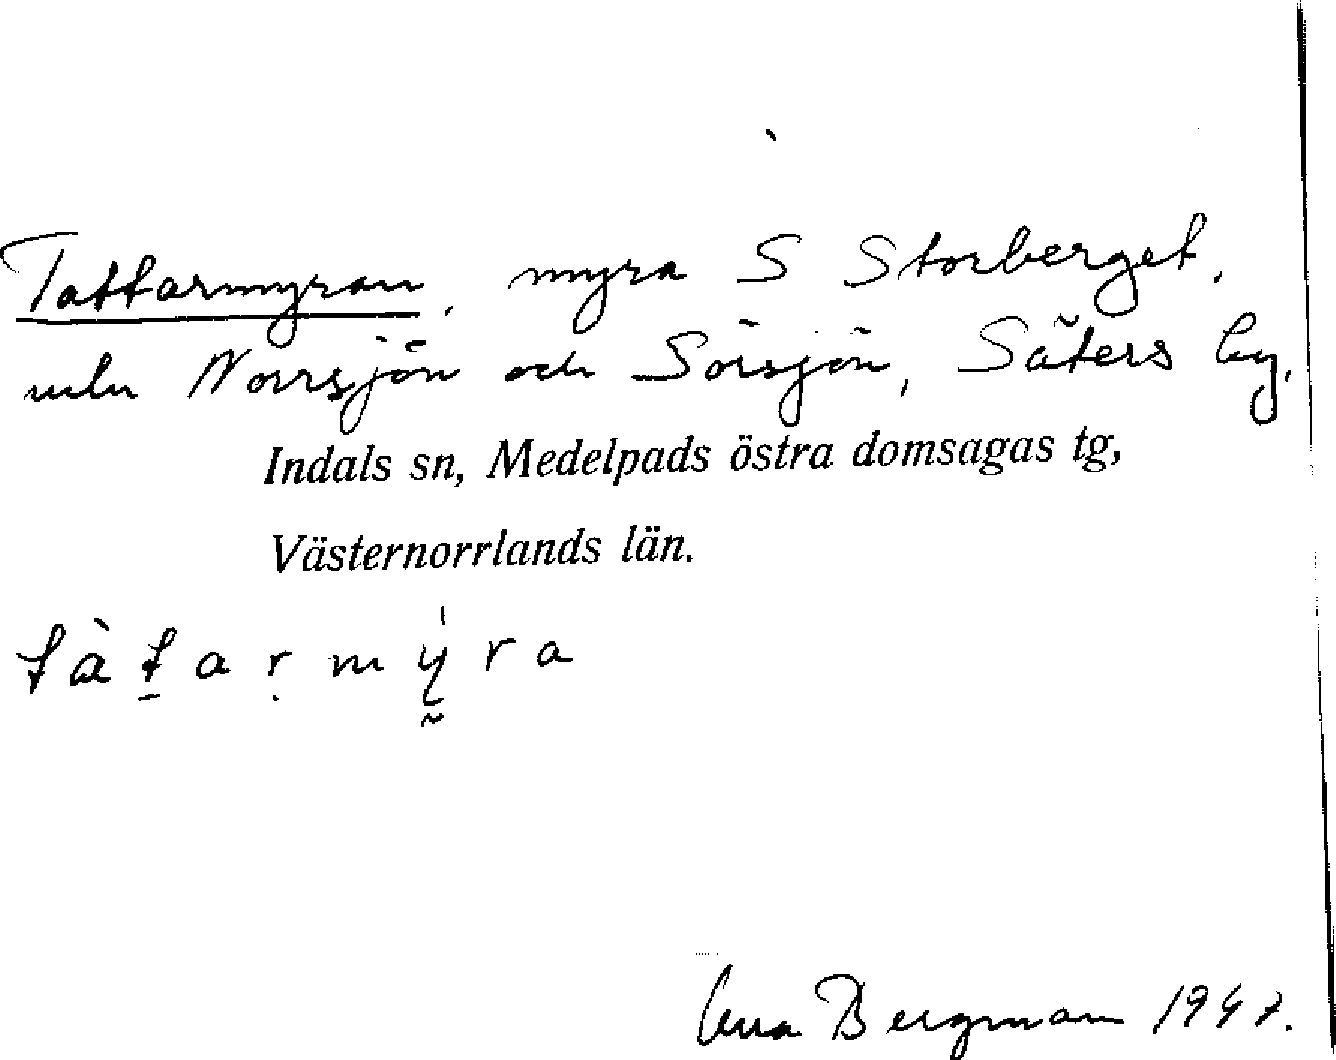 Tattarmyran, myra S Storberget,
mln Norrsjön och Sörsjön, Säters by,
Indals sn, Medelpads östra domsagas tg,
Västernorrlands län.
tàt̲aṛmy̰̍ra
Bergman 1947.